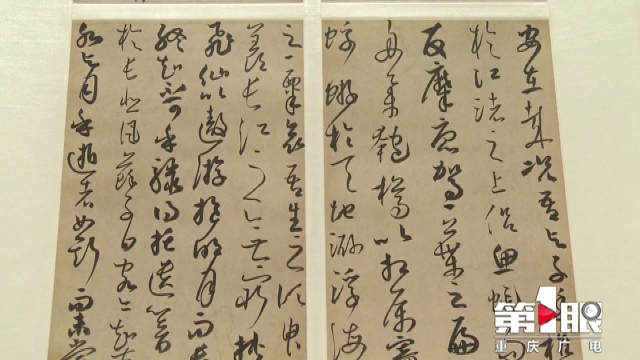 安在哉況吾與子漁樵
於江渚之上侶魚蝦
友麋鹿駕一葉之扁
舟舉匏樽以相屬寄
蜉蝣於天地渺浮海
之一粟哀吾生之須臾
羨長江之無窮挾
飛仙以遨遊抱明月而長
終知不可乎驟得托遺響
於悲風蘇子曰客亦知
水與月乎逝者如斯而未嘗
第1眼
重庆广电